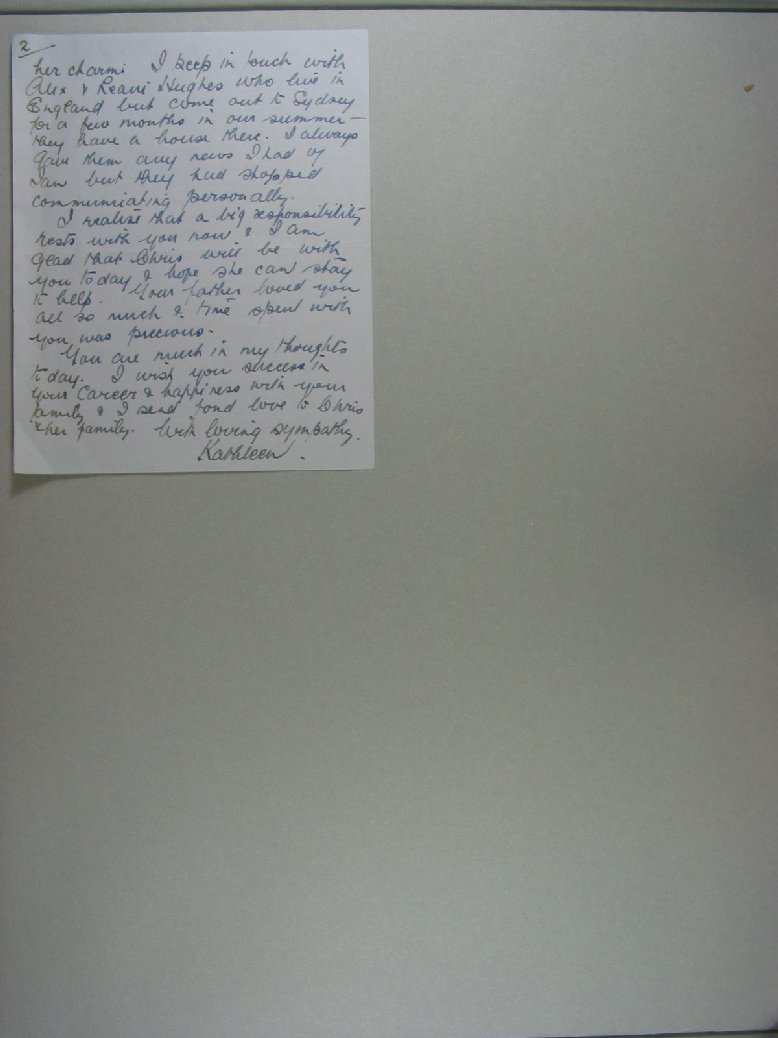 2
her charm. I keep in touch with
Alix & Reani Hughes who live in
England but come out to Sydney
for a few months in our summer -
they have a house there. I always
gave them any news I had of
Ian but they had stopped
communicating personally.
I realise that a big responsibility
rests with you now & I am
glad that Chris will be with
you today & hope she can stay
to help. Your father loved you
all so much & time spent with
you was precious.
You are much in my thoughts
today. I wish you success in
your career & happiness with your
family & I send fond love to Chris
& her family. With loving sympathy.
Kathleen.